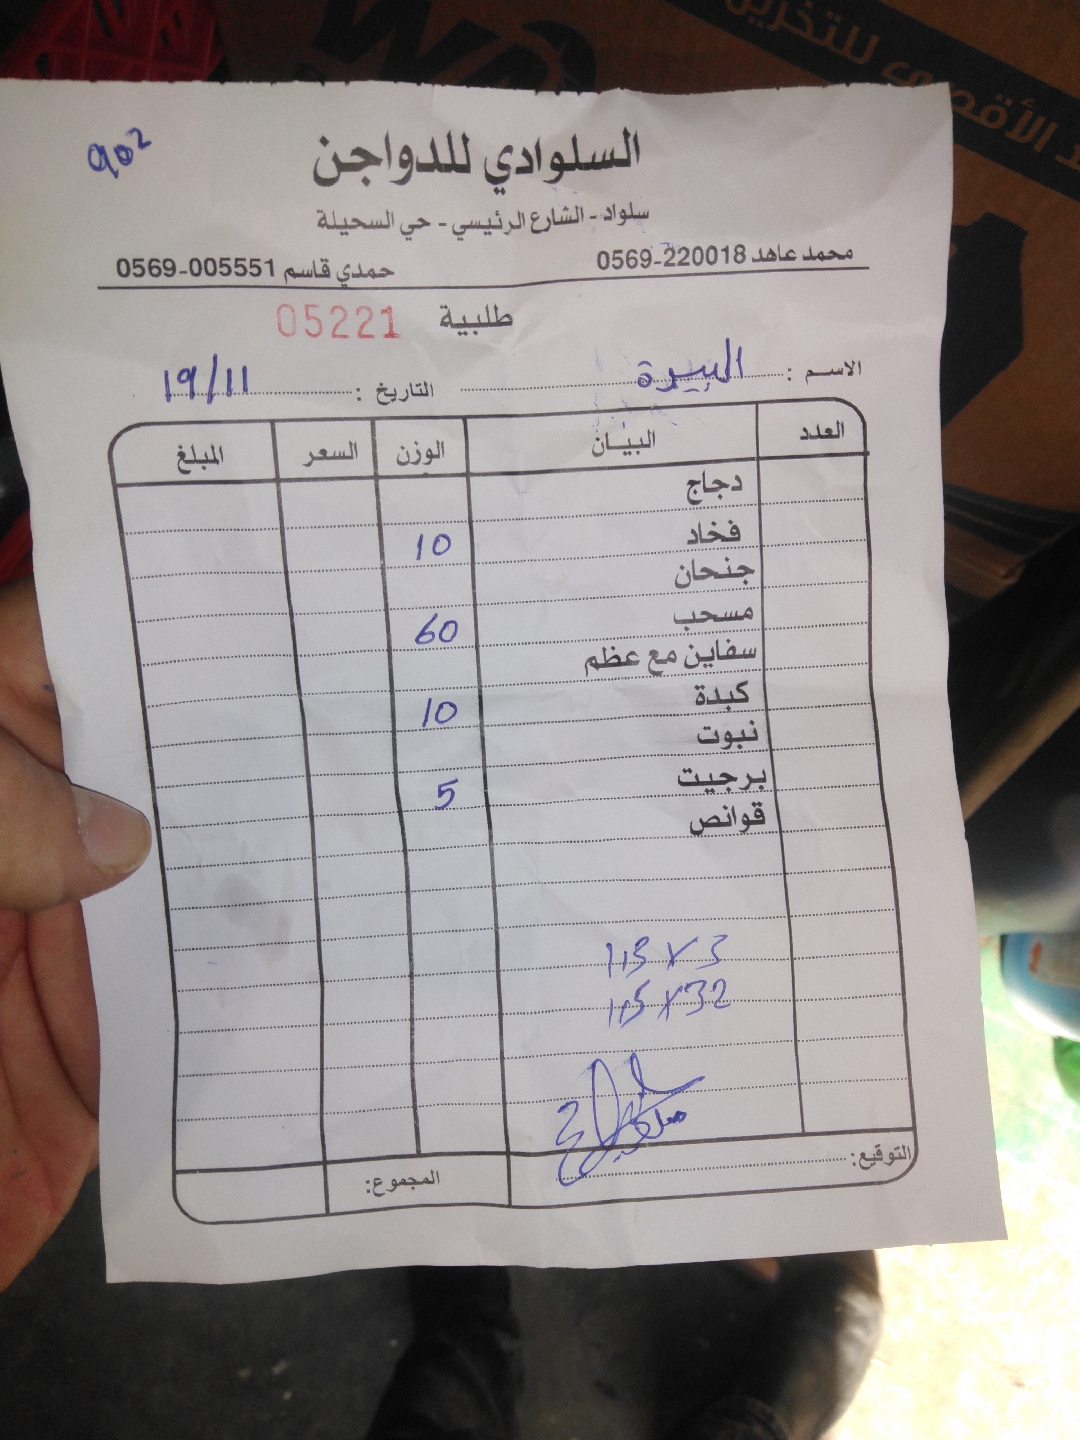 د الأقصى للتخزين
90²
السلوادي للدواجن
سلواد - الشارع الرئيسي - حي السحيلة
محمد عاهد 220018-0569 حمدي قاسم 005551-0569
طلبية 05221
الاسم : البيرة التاريخ : 19/11
العدد البيان الوزن السعر المبلغ
دجاج
فخاد 10
جنحان
مسحب 60
سفاين مع عظم
كبدة 10
نبوت
برجيت 5
قوانص
113 x 3
115 x 32
التوقيع:
المجموع: